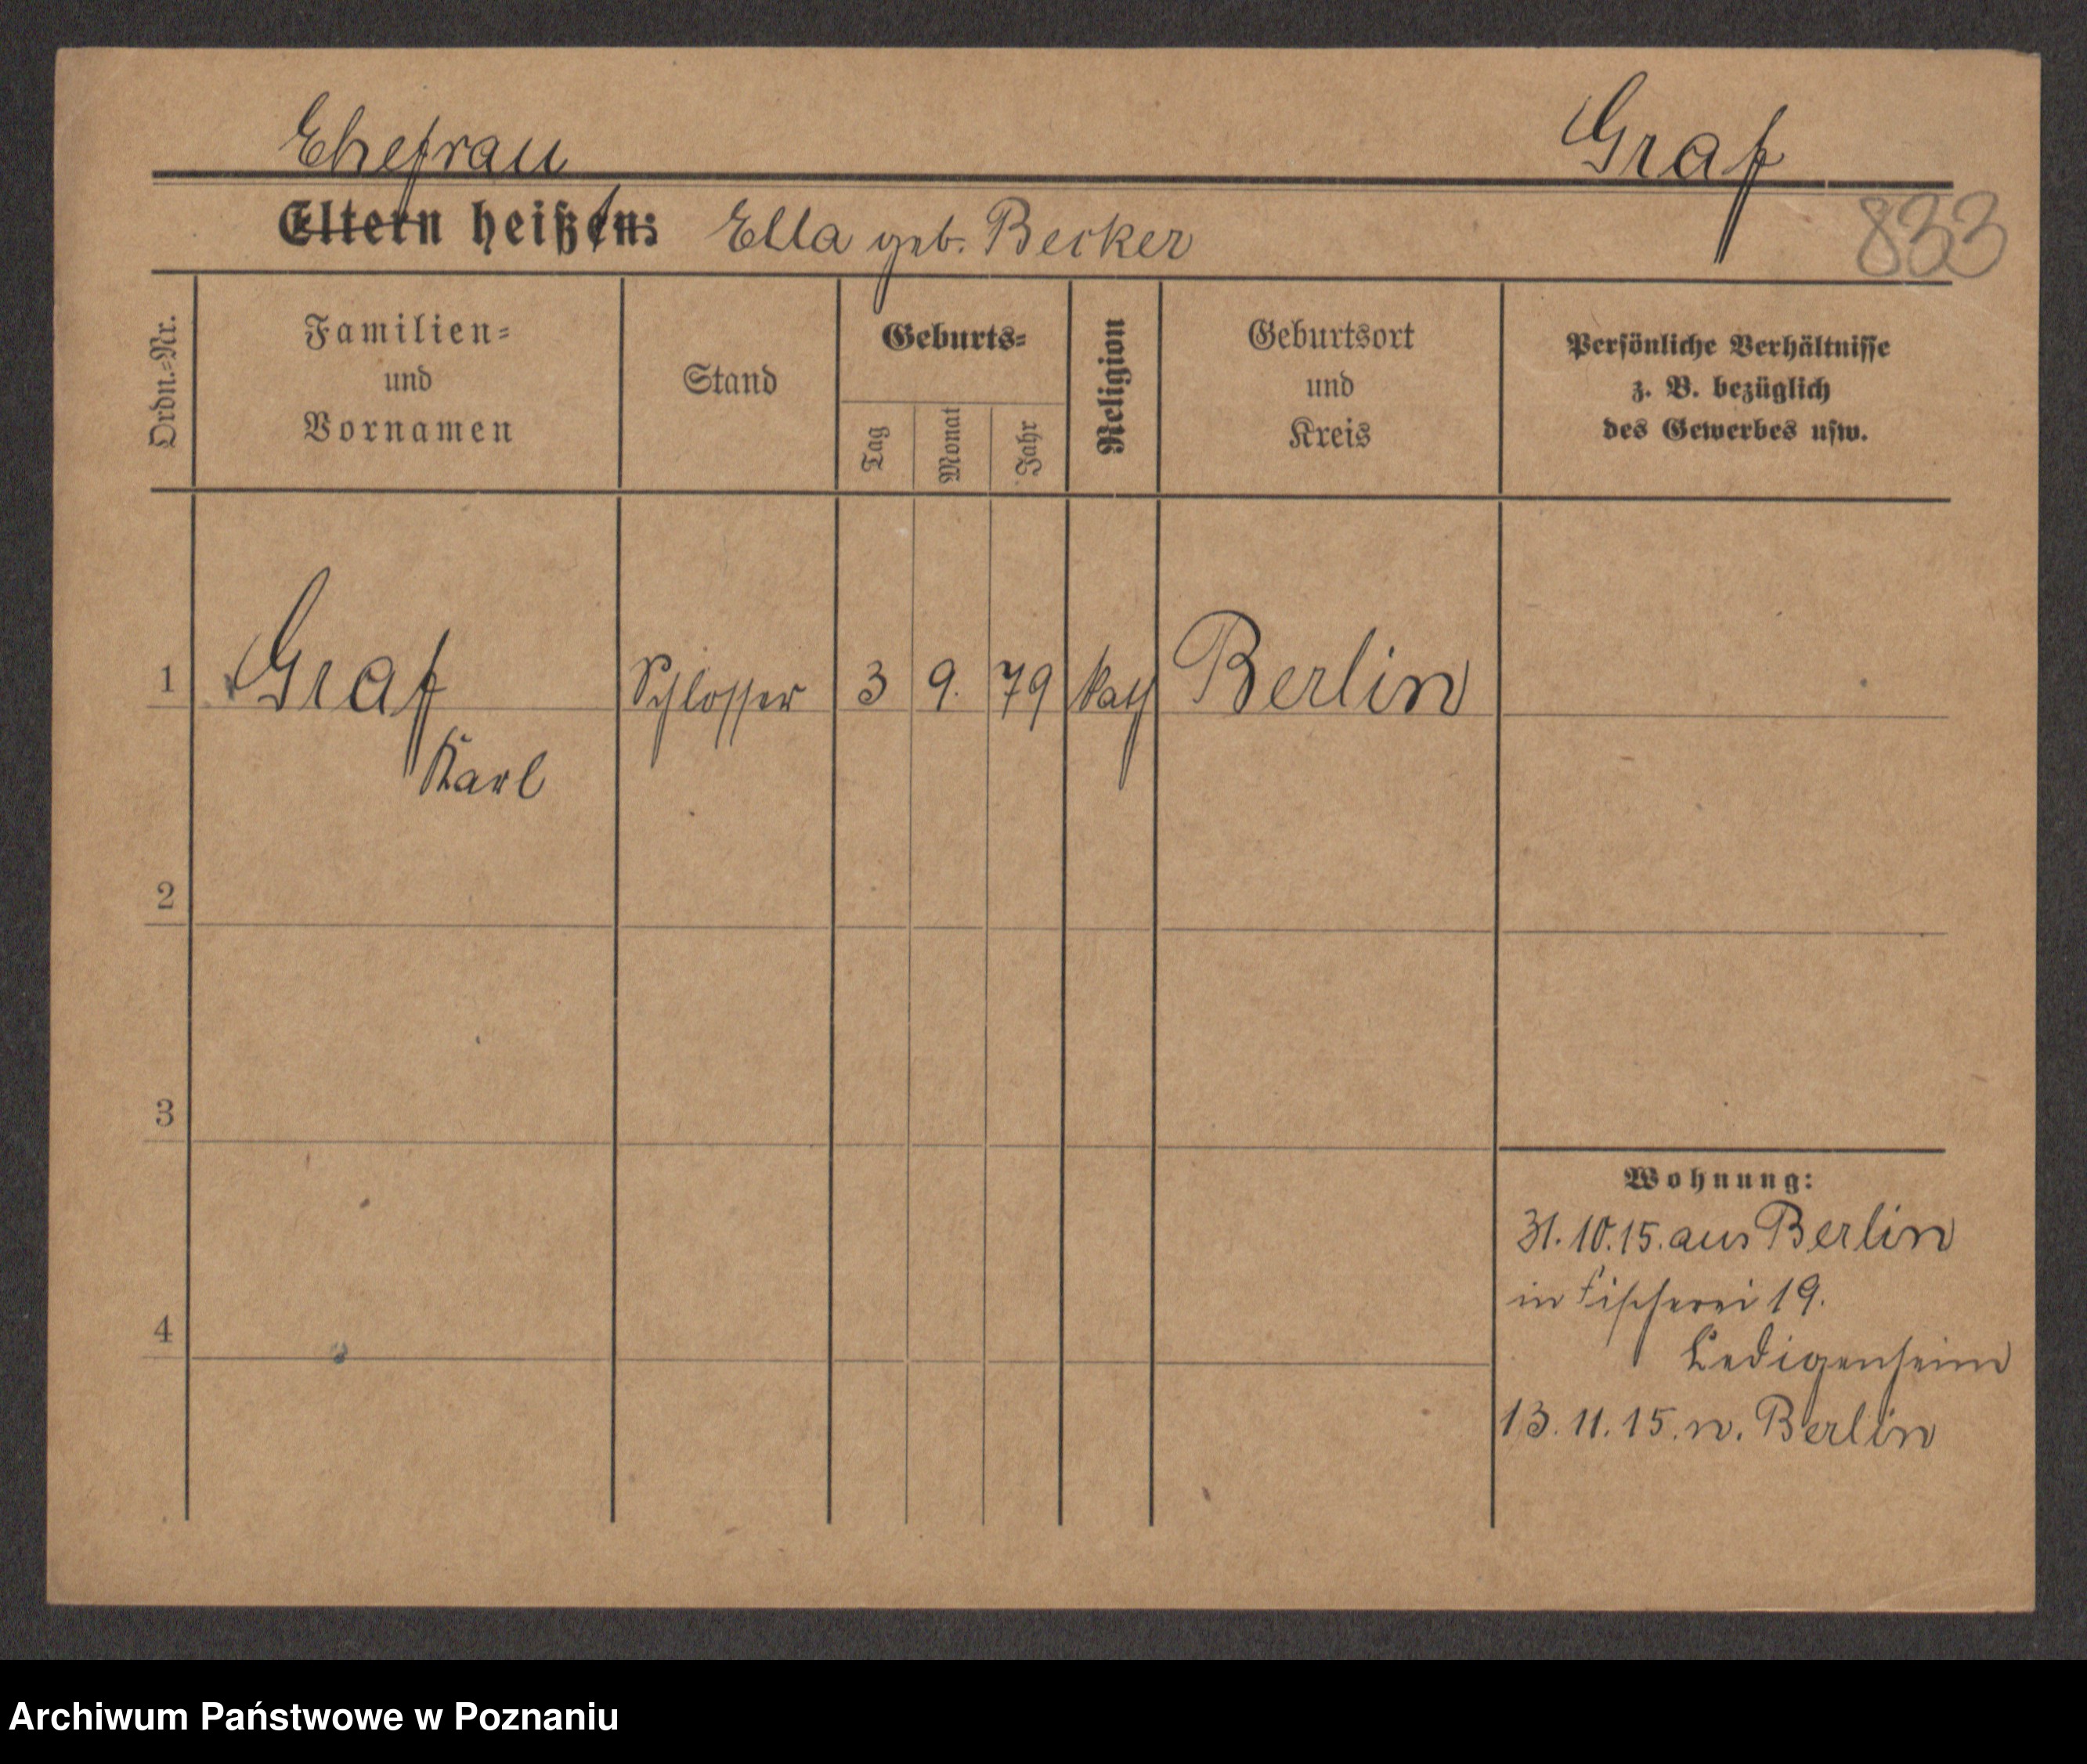 Ehefrau Graf
Eltern heißen: Ella geb. Becker 833
Ordn.-Nr.
Familien-
und
Vornamen
Stand
Geburts-
Tag
Monat
Jahr
Religion
Geburtsort
und
Kreis
Persönliche Verhältnisse
z. B. bezüglich
des Gewerbes usw.
1 Graf Schlosser 3 9. 79 kath Berlin
Karl
2
3
4
Wohnung:
31.10.15. aus Berlin
in Fischerei 19.
Ledigenheim
13.11.15. n. Berlin
Archiwum Państwowe w Poznaniu